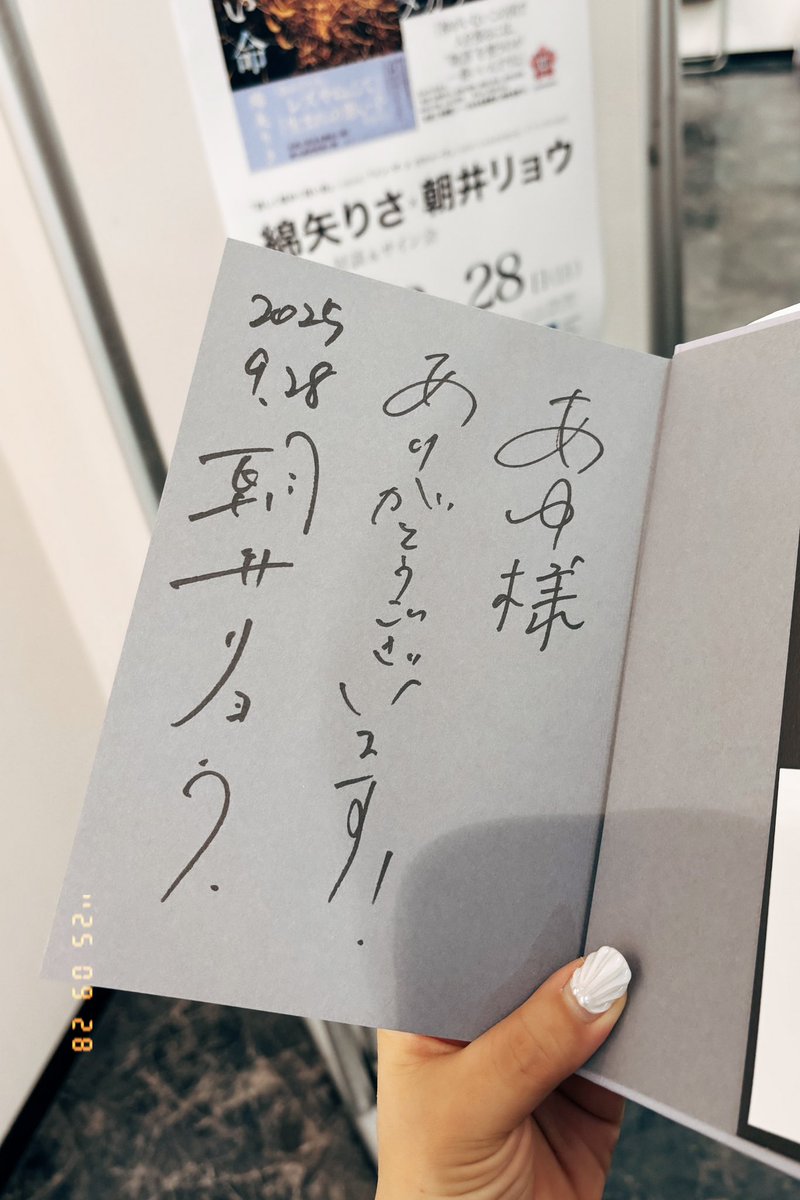 い命
綿矢りさ・朝井リョウ
対談&サイン会
28日(日)
あゆ様
ありがとうございます!
2025
9.28
朝井リョウ.
'25 09 28